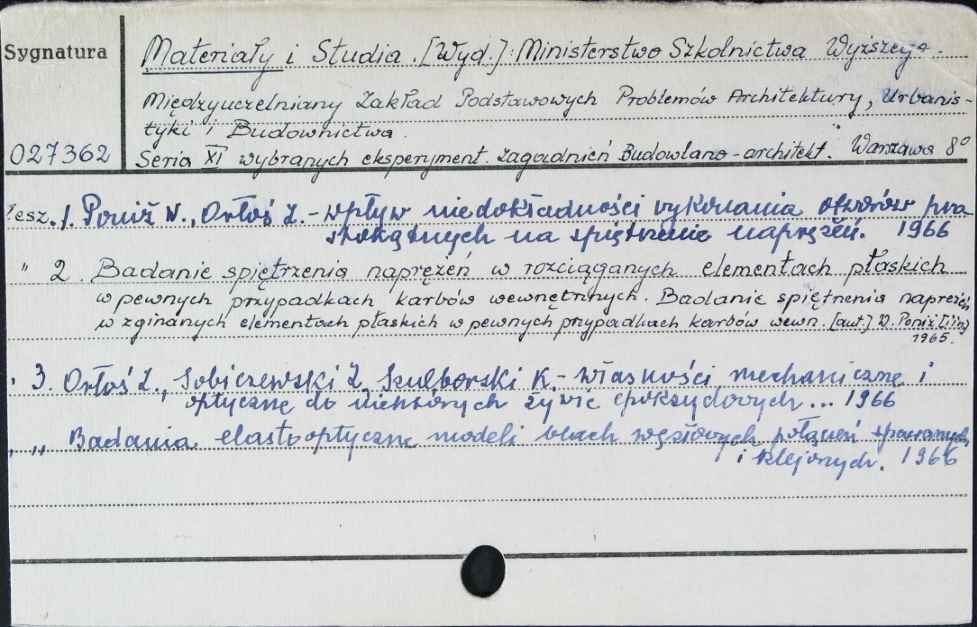 Sygnatura
Materiały i Studia. [Wyd.]: Ministerstwo Szkolnictwa Wyższego.
Międzyuczelniany Zakład Podstawowych Problemów Architektury, Urbanis-
tyki i Budownictwa.
027362
Seria XI wybranych eksperyment. Zagadnień Budowlano-architekt. Warszawa 8°
zesz. 1. Poniż W., Orłoś Z. - wpływ niedokładności wykonania otworów pro
stokątnych na spiętrzenie naprężeń. 1966
" 2. Badanie spiętrzenia naprężeń w rozciąganych elementach płaskich
w pewnych przypadkach karbów wewnętrznych. Badanie spiętrzenia naprężeń
w zginanych elementach płaskich w pewnych przypadkach karbów wewn. [aut.] W. Poniż [i in]
1965.
" 3. Orłoś Z., Sobiczewski Z. Szulborski K. - własności mechaniczne i
optyczne do niektórych żywic epoksydowych... 1966
" " Badania elastooptyczne modeli blach węzłowych połączeń spawanych
i klejonych. 1966